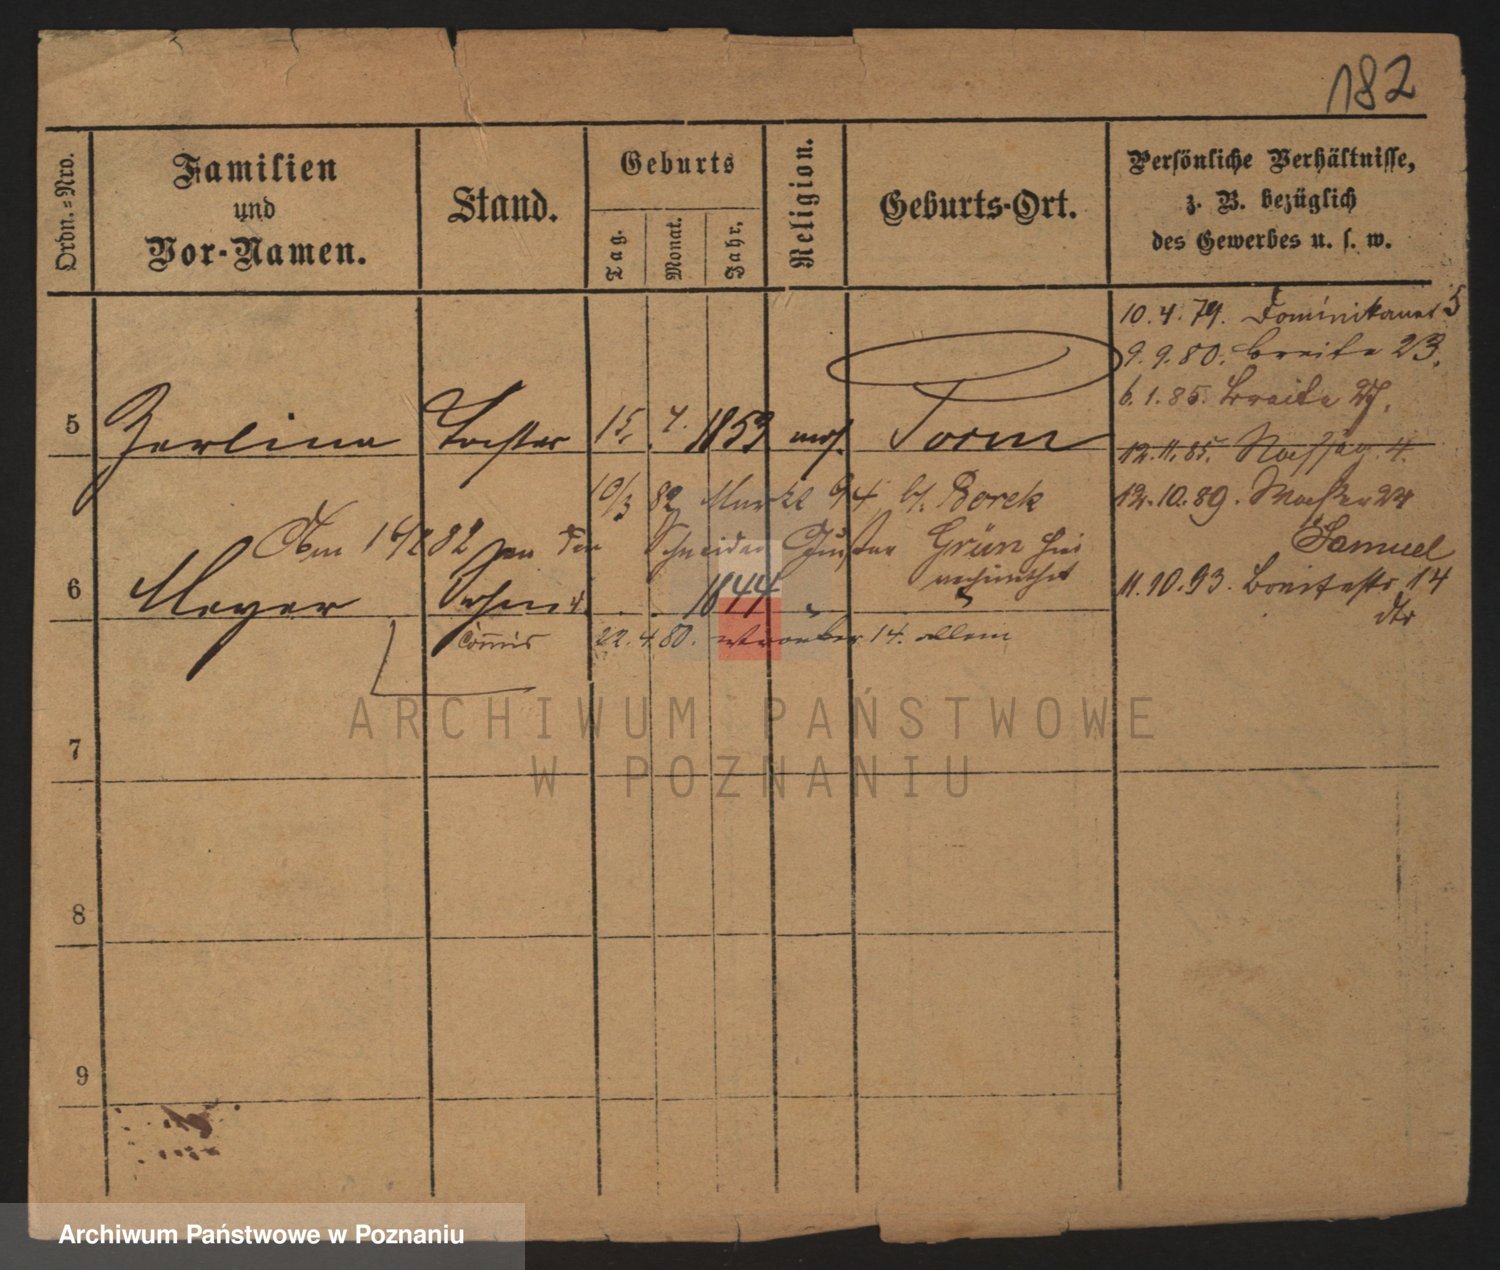 182
Ordn.=Nro.
Familien
und
Vor-Namen.
Stand.
Geburts
Tag.
Monat.
Jahr.
Religion.
Geburts-Ort.
Persönliche Verhältnisse,
z. B. bezüglich
des Gewerbes u. s. w.
10. 4. 79. Dominikaner 5
9. 9. 80. Breite 23.
6. 1. 85. Breite 27.
5 Zerlina Tochter 15. 4. 1853 mos.
12. 11. 85. 4.
10/3 82 Markt 94 b/. Borek
12. 10. 89. Wasser 24
1882 den Schneider Grün hier
Samuel
verheirathet
6 Meyer Sohn 1844 "
11. 10. 93. Breitestr. 14
Commis 22. 4. 80. Wronker 14. allein
dto
7
8
9
ARCHIWUM PAŃSTWOWE
W POZNANIU
Archiwum Państwowe w Poznaniu